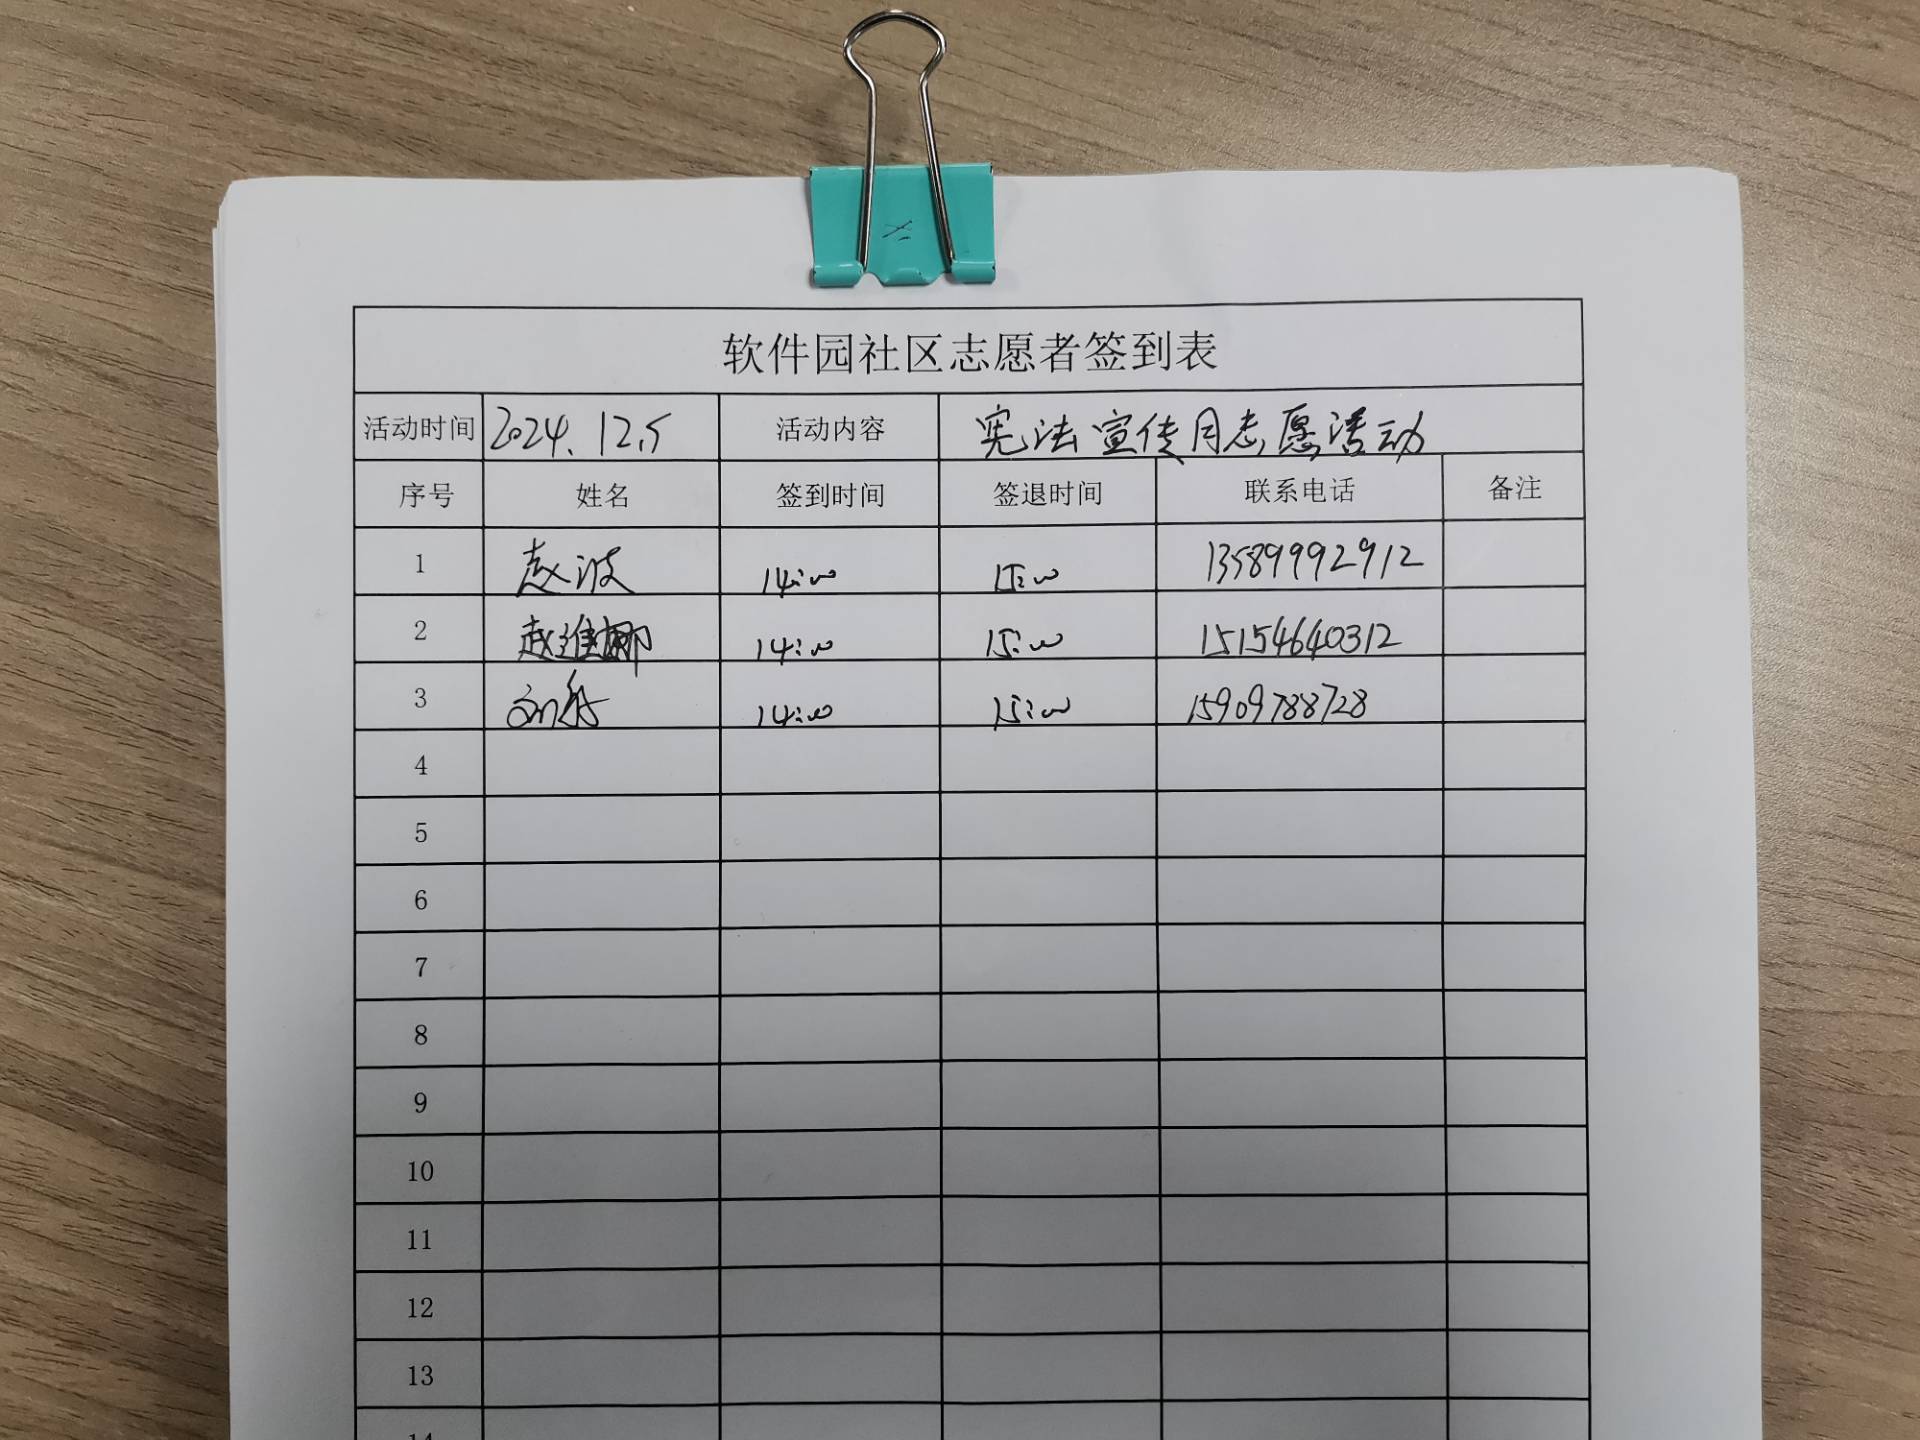 软件园社区志愿者签到表
活动时间 2024.12.5 活动内容 宪法宣传月志愿活动
序号 姓名 签到时间 签退时间 联系电话 备注
1 赵波 14:00 15:00 13589992912
2 赵 娜 14:00 15:00 15154640312
3 刘 14:00 15:00 15909788728
4
5
6
7
8
9
10
11
12
13